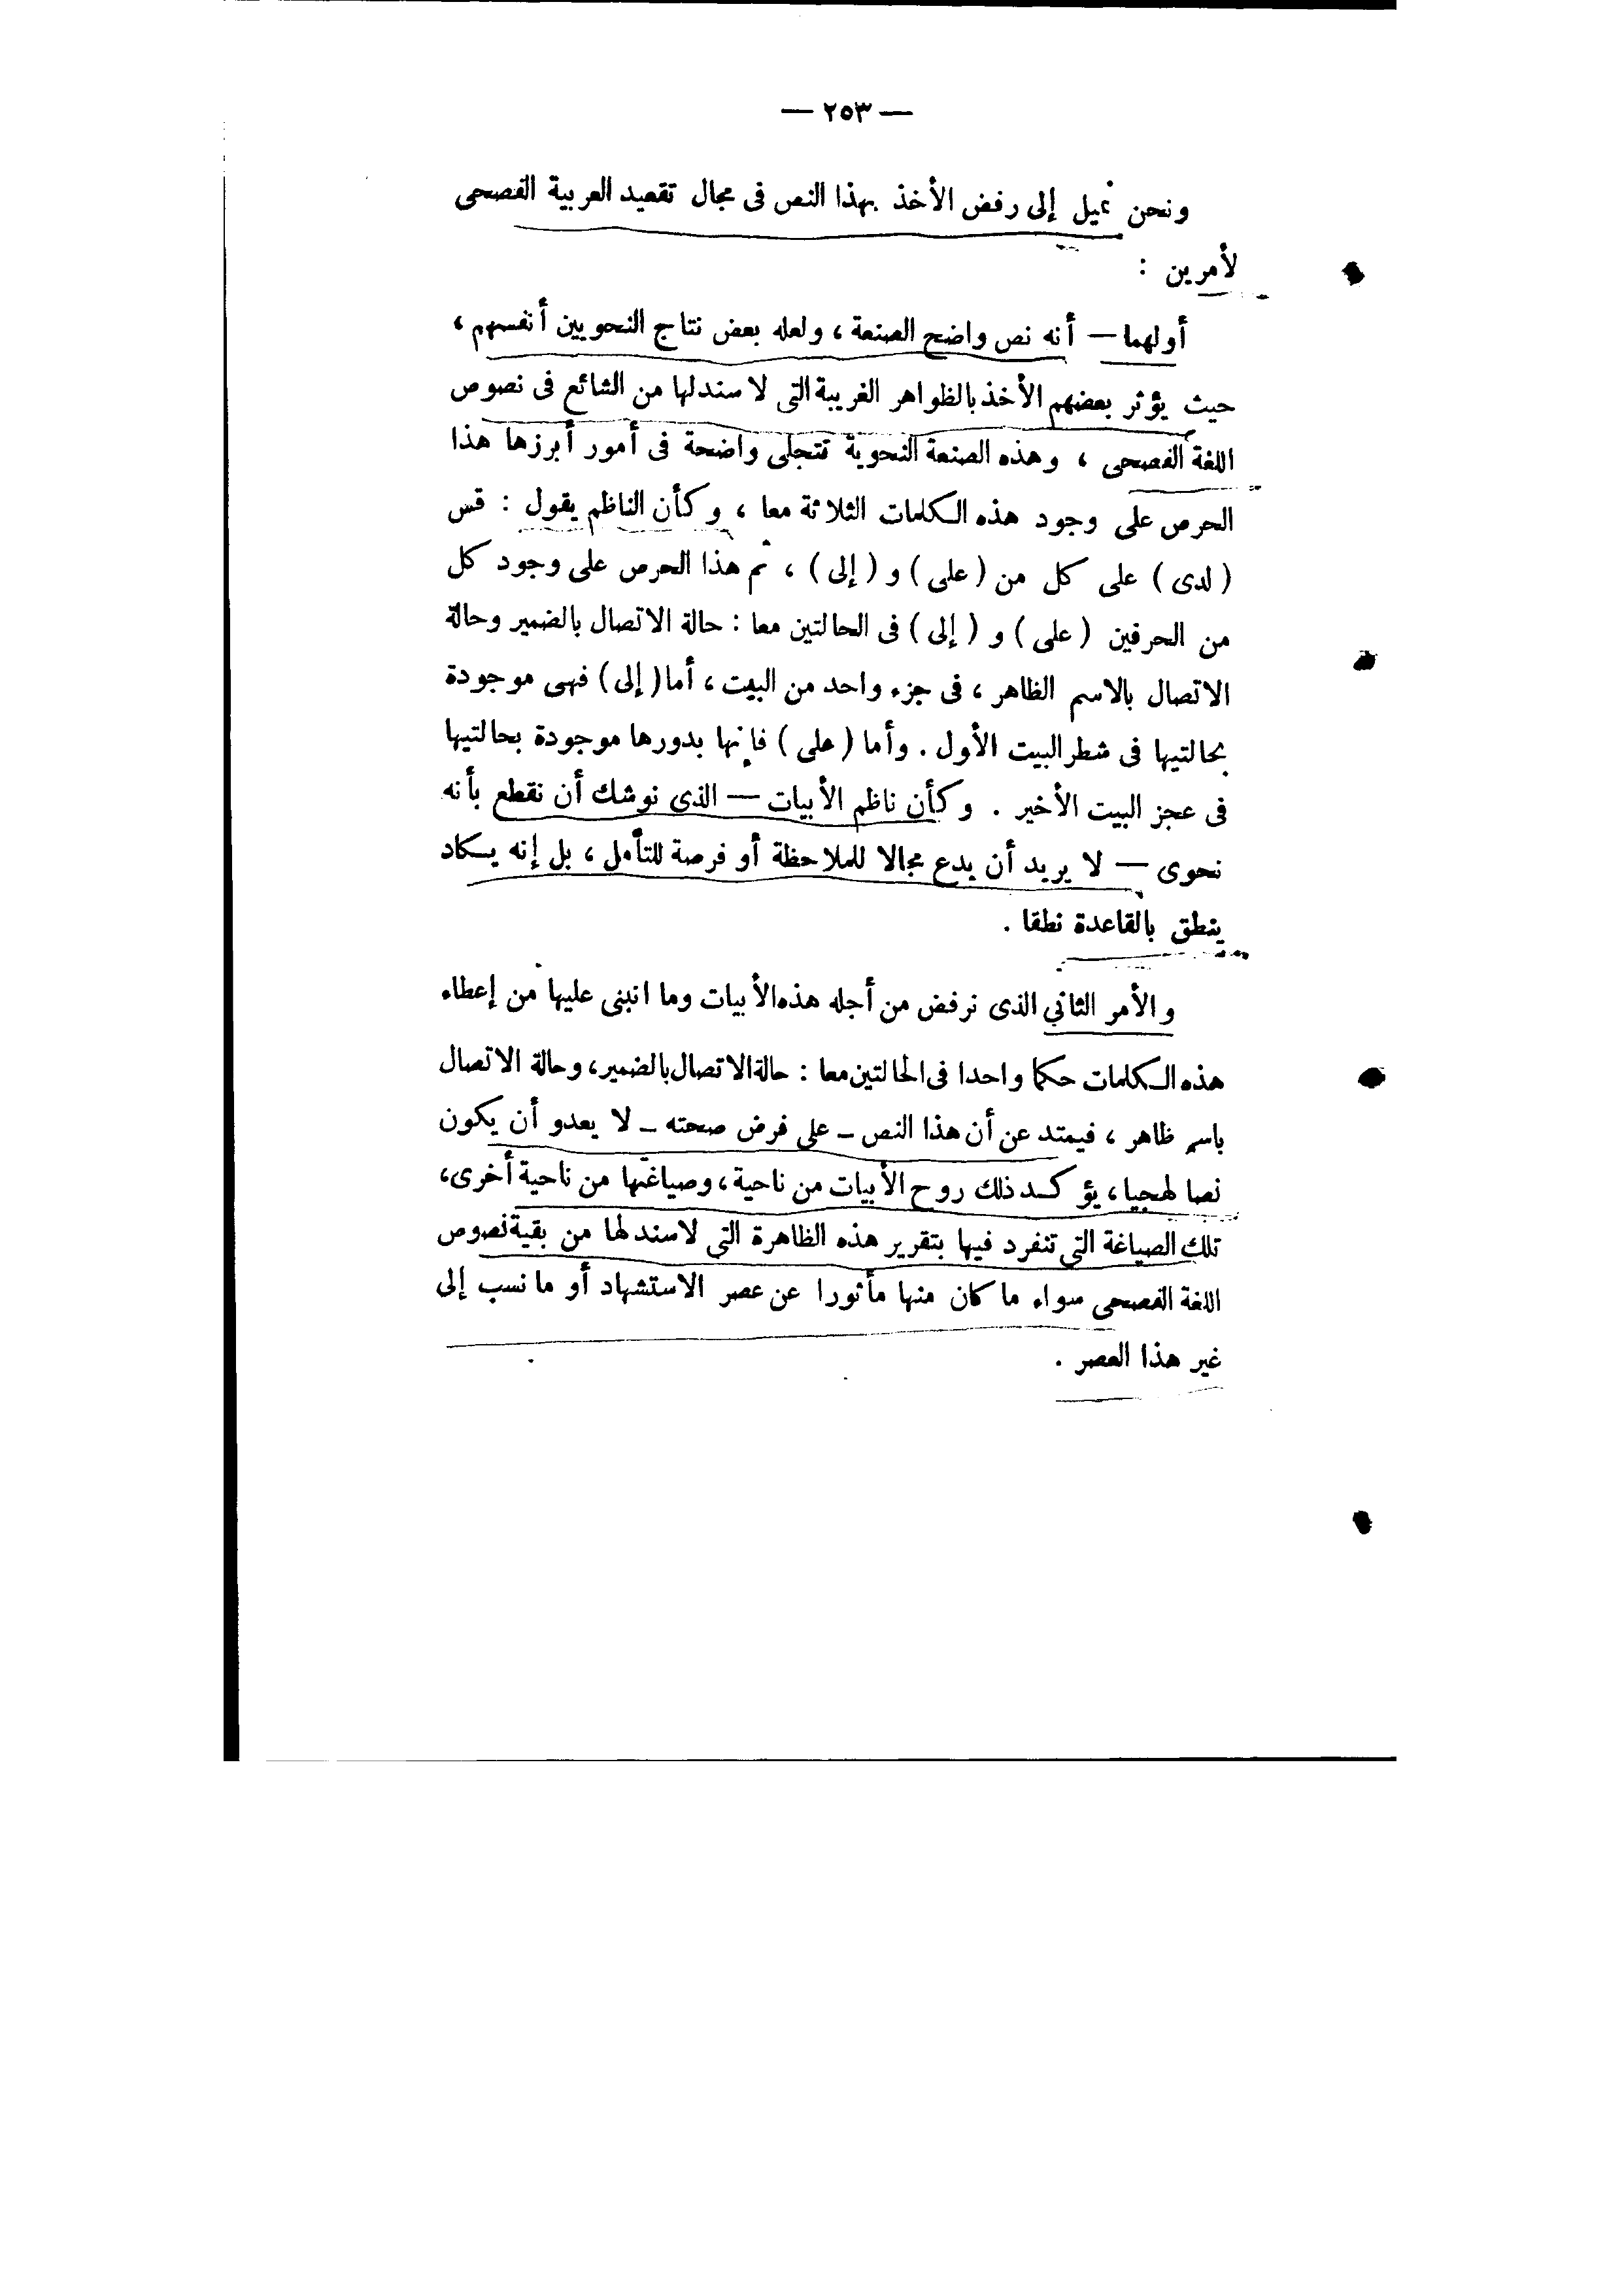 — ٢٥٣ —
ونحن نميل إلى رفض الأخذ بهذا النص فى مجال تقعيد العربية الفصحى
لأمرين :
أولهما — أنه نص واضح الصنعة ، ولعله بعض نتاج النحويين أنفسهم ،
حيث يؤثر بعضهم الأخذ بالظواهر الغريبة التى لا سند لها من الشائع فى نصوص
اللغة الفصحى ، وهذه الصنعة النحوية تتجلى واضحة فى أمور أبرزها هذا
الحرص على وجود هذه الكلمات الثلاثة معا ، وكأن الناظم يقول : قس
( لدى ) على كل من ( على ) و ( إلى ) ، ثم هذا الحرص على وجود كل
من الحرفين ( على ) و ( إلى ) فى الحالتين معا : حالة الاتصال بالضمير وحالة
الاتصال بالاسم الظاهر ، فى جزء واحد من البيت ، أما ( إلى ) فهى موجودة
بحالتيها فى شطر البيت الأول . وأما ( على ) فإنها بدورها موجودة بحالتيها
فى عجز البيت الأخير . وكأن ناظم الأبيات — الذى نوشك أن نقطع بأنه
نحوى — لا يريد أن يدع مجالا للملاحظة أو فرصة للتأمل ، بل إنه يكاد
ينطق بالقاعدة نطقا .
والأمر الثانى الذى نرفض من أجله هذه الأبيات وما انبنى عليها من إعطاء
هذه الكلمات حكما واحدا فى الحالتين معا : حالة الاتصال بالضمير ، وحالة الاتصال
باسم ظاهر ، فيمتد عن أن هذا النص – على فرض صحته – لا يعدو أن يكون
نصا لهجيا ، يؤكد ذلك روح الأبيات من ناحية ، وصياغتها من ناحية أخرى ،
تلك الصياغة التى تنفرد فيها بتقرير هذه الظاهرة التى لا سند لها من بقية نصوص
اللغة الفصحى سواء ما كان منها مأثورا عن عصر الاستشهاد أو ما نسب إلى
غير هذا العصر .